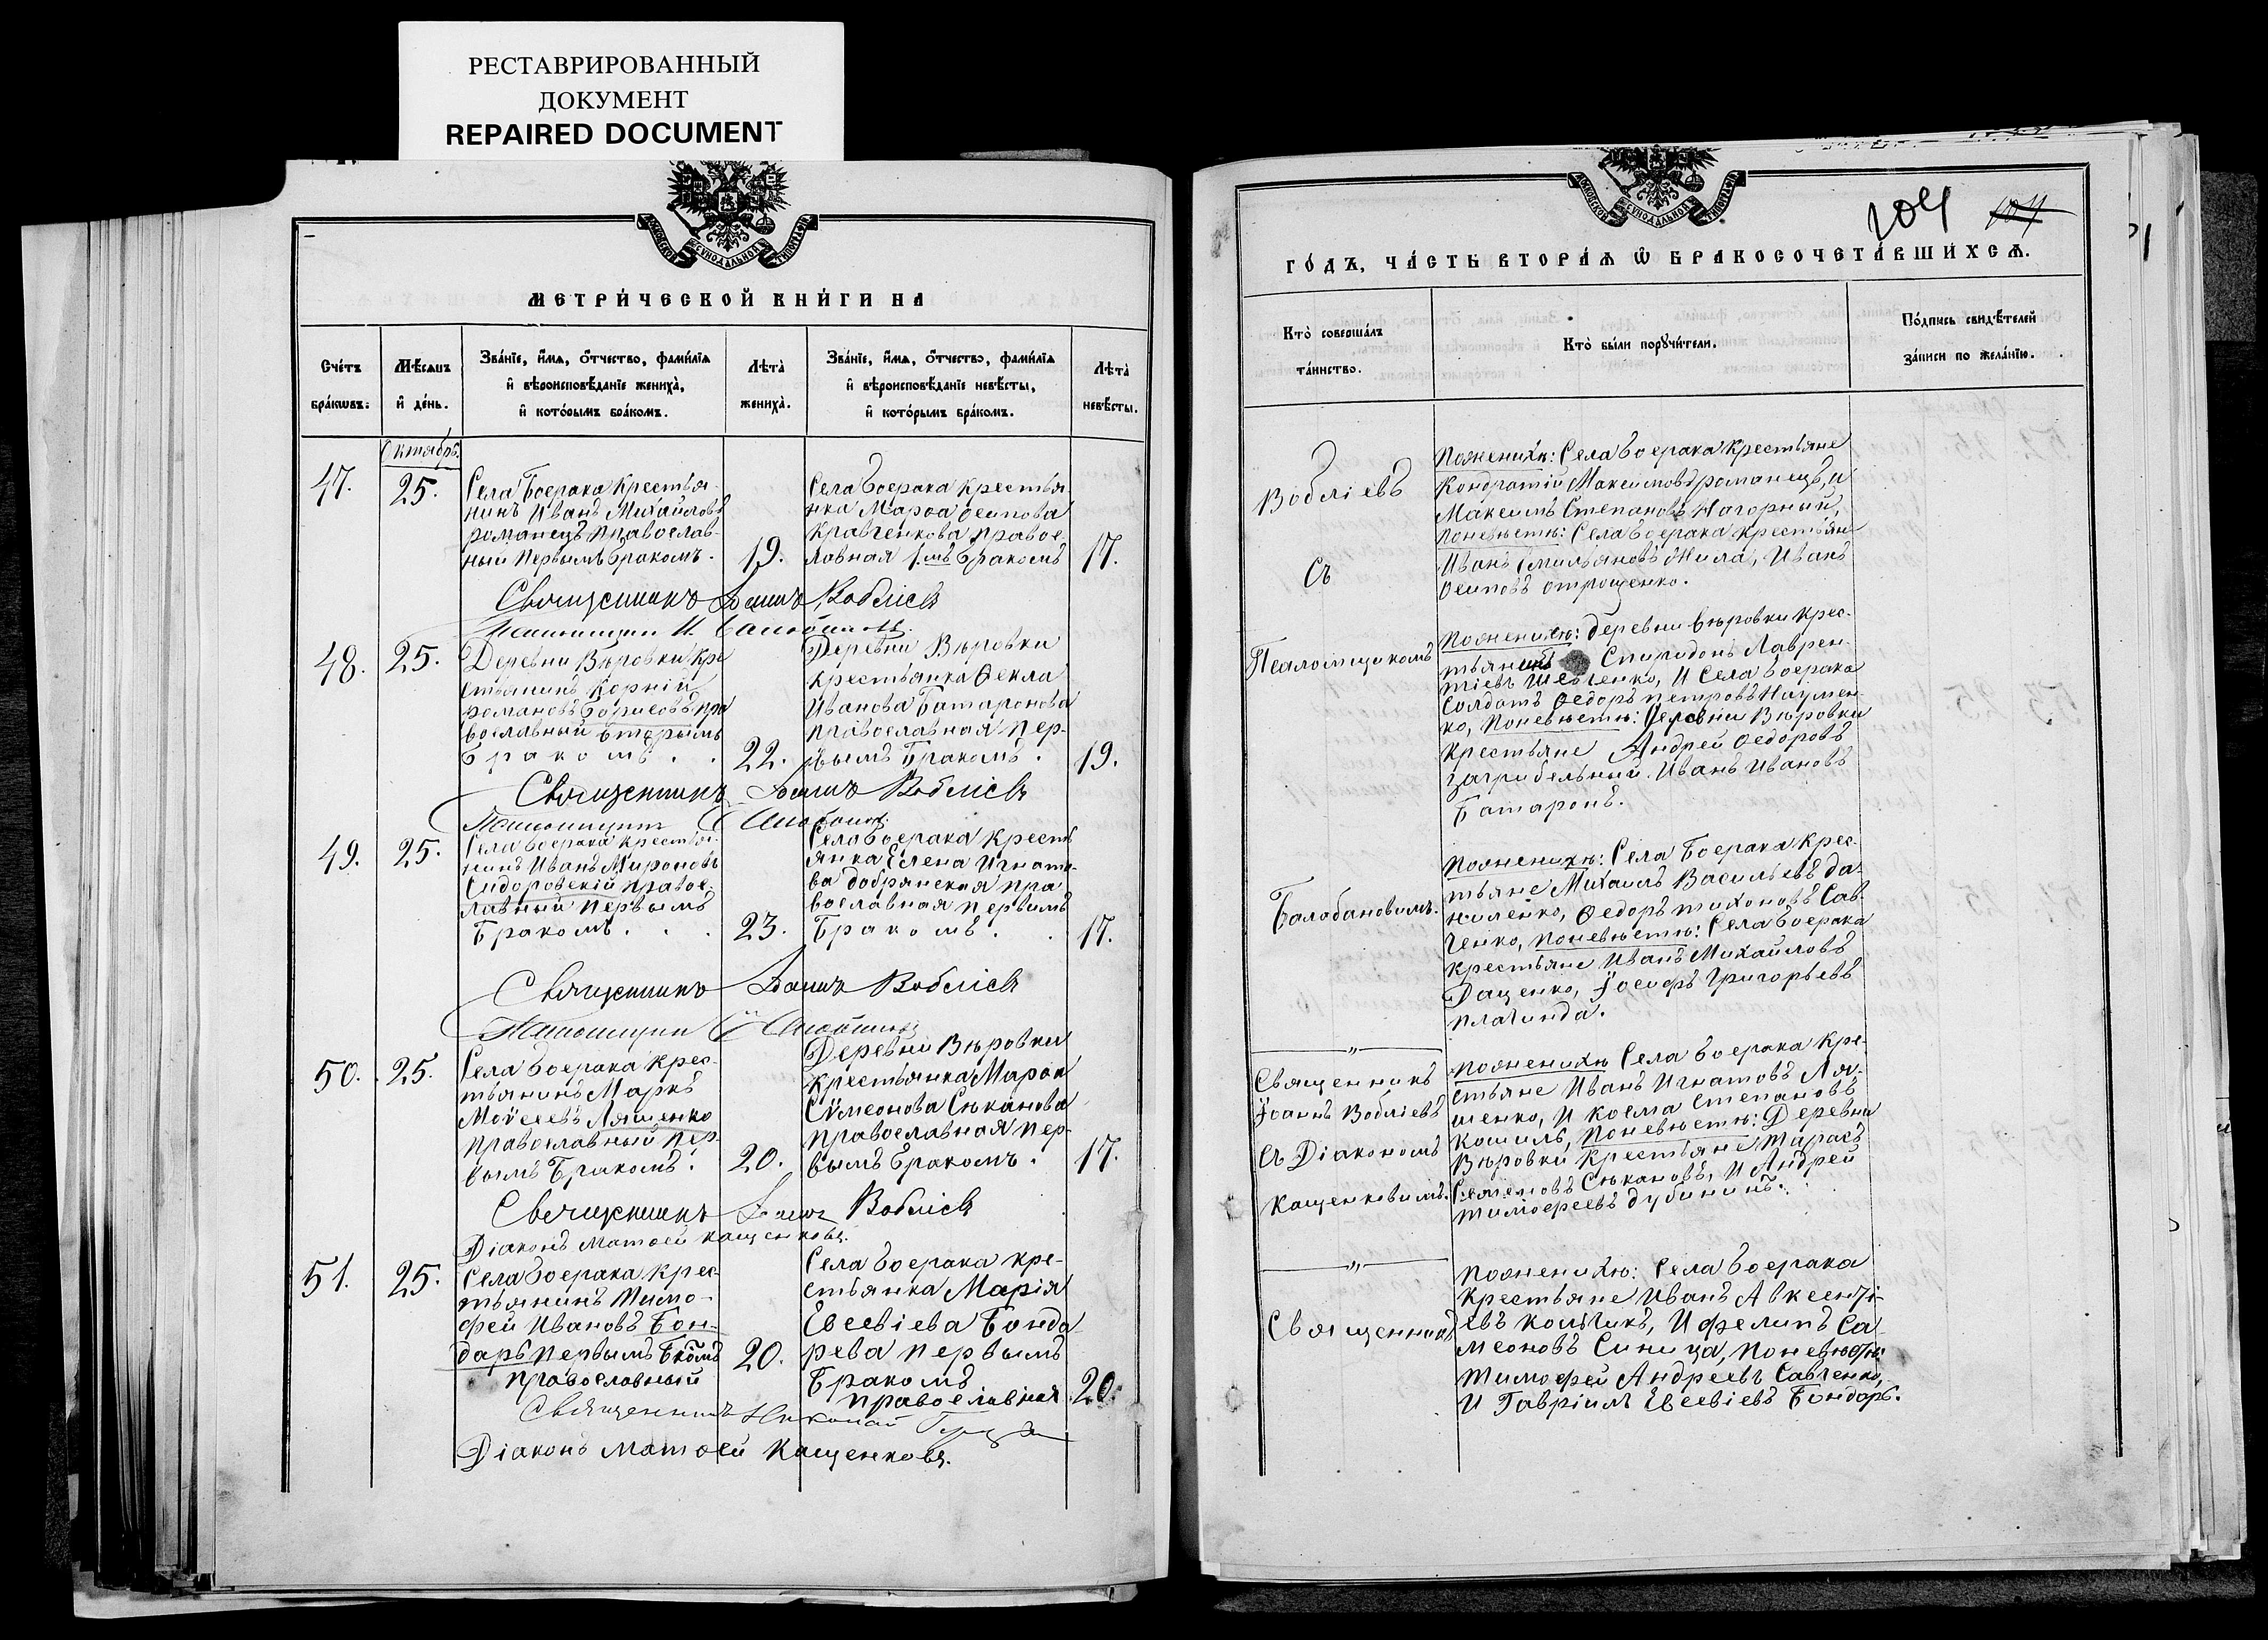 РЕСТАВРИРОВАННЫЙ
ДОКУМЕНТ
REPAIRED DOCUMENT
МОСКОВСКОЙ СѴНОДАЛЬНОЙ ТИПОГРАФІИ
МЕТРИ́ЧЕСКОЙ КНИ́ГИ НА
Сче́тъ
бра́кѡвъ.
Мѣ́сѧцъ
и҆ де́нь.
Зва́нїе, и҆́мѧ, ѻ҆́тчество, фами́лїѧ
и҆ вѣроисповѣ́данїе жениха̀,
и҆ кото́рымъ бра́комъ.
Лѣта̀
жениха̀.
Зва́нїе, и҆́мѧ, ѻ҆́тчество, фами́лїѧ
и҆ вѣроисповѣ́данїе невѣ́сты,
и҆ кото́рымъ бра́комъ.
Лѣта̀
невѣ́сты.
Октябрь.
47.
25.
Села Боерака крестья-
нинъ Иванъ Михайловъ
романецъ православ-
ный первымъ бракомъ.
19.
Села Боерака крестья-
нка Марѳа Осипова
Кравченкова правос-
лавная 1.мъ бракомъ
17.
Священникъ Іоаннъ Воблiевъ
48.
25.
Деревни Вѣровки кре
стьянинъ Корнiй
романовъ Борисовъ пра
вославный вторымъ
бракомъ . .
22.
Деревни Вѣровки
крестьянка Ѳекла
Иванова Батаронова
православная пер-
вымъ бракомъ.
19.
Священникъ Іоаннъ Воблiевъ
49.
25.
Села Боерака крестья-
нинъ Иванъ Мироновъ
Сидоровскiй правос-
лавный первымъ
бракомъ . . .
23.
Села Боерака кресть
янка Елена Игнать-
ва добрянская пра
вославная первымъ
бракомъ . .
17.
Священникъ Іоаннъ Воблiевъ
50.
25.
Села Боерака крес-
тьянинъ Маркъ
Моѵсеевъ Ляшенко
православный пер-
вымъ бракомъ.
20.
Деревни Вѣровки
крестьянка Марѳа
Сѵмеонова Сѣканова
православная пер-
вымъ бракомъ.
17.
Священникъ Іоаннъ Воблiевъ
Дiаконъ Матѳей Кащенковъ.
51.
25.
Села Боерака крес-
тьянинъ Тимо-
фей Ивановъ Бон-
дарь первымъ бкомъ
православный
20.
Села Боерака кре-
стьянка Марiя
Евсевiева Бонда
рева первымъ
бракомъ
православная
20.
Священникъ Николай
Дiаконъ Матѳей Кащенковъ.
104 104
ГО́ДЪ, ЧА́СТЬ ВТОРА́Ѧ Ѽ БРАКОСОЧЕТА́ВШИХСѦ.
Кто̀ соверша́лъ
та́инство.
Кто̀ бы́ли порꙋчи́тели.
По́дпись свидѣ́телей
за́писи по жела́нїю.
Воблiевъ
Съ
Псаломщикомъ
Балабановымъ.
По женихѣ: Села Боерака крестьяне
Кондратiй Максимовъ романецъ, и
Максимъ Степановъ Нагорный,
по невѣстѣ: Села Боерака крестьяне
Иванъ Емильяновъ Жила, Иванъ
Осиповъ отрощенко.
По женихѣ: деревни Вѣровки крес-
тьянинъ Спиридонъ Лаврен-
тiевъ Шевченко, и Села Боерака
Солдатъ Ѳедоръ Петровъ Наумен-
ко, по невѣстѣ: Деревни Вѣровки
крестьяне Андрей Ѳедоровъ
загрибельный. Иванъ Ивановъ
Батаронъ.
По женихѣ: Села Боерака крес-
тьяне Михаилъ Васильевъ Да-
ниленко, Ѳедоръ тихоновъ Сав-
ченко, по невѣстѣ: Села Боерака
крестьяне Иванъ Михайловъ
Дащенко, Iосифъ Григорьевъ
плачинда.
Священникъ
Iоаннъ Воблiевъ
Съ Дiакономъ
Кащенковымъ.
По женихѣ Села Боерака кре-
стьяне Иванъ Игнатовъ Ля-
шенко, и Косма Степановъ
Кошиль, по невѣстѣ: Деревни
Вѣровки крестьяне Тарасъ
Семеновъ Сѣкановъ, и Андрей
тимофеевъ Дубининъ.
Священникъ
По женихѣ: Села Боерака
крестьяне Иванъ Авксентi-
евъ Кольчикъ, и Фелипъ Са
меоновъ Синица, по невѣстѣ:
Тимофей Андреевъ Савченко,
и Гаврiилъ Евсевiевъ Бондарь.